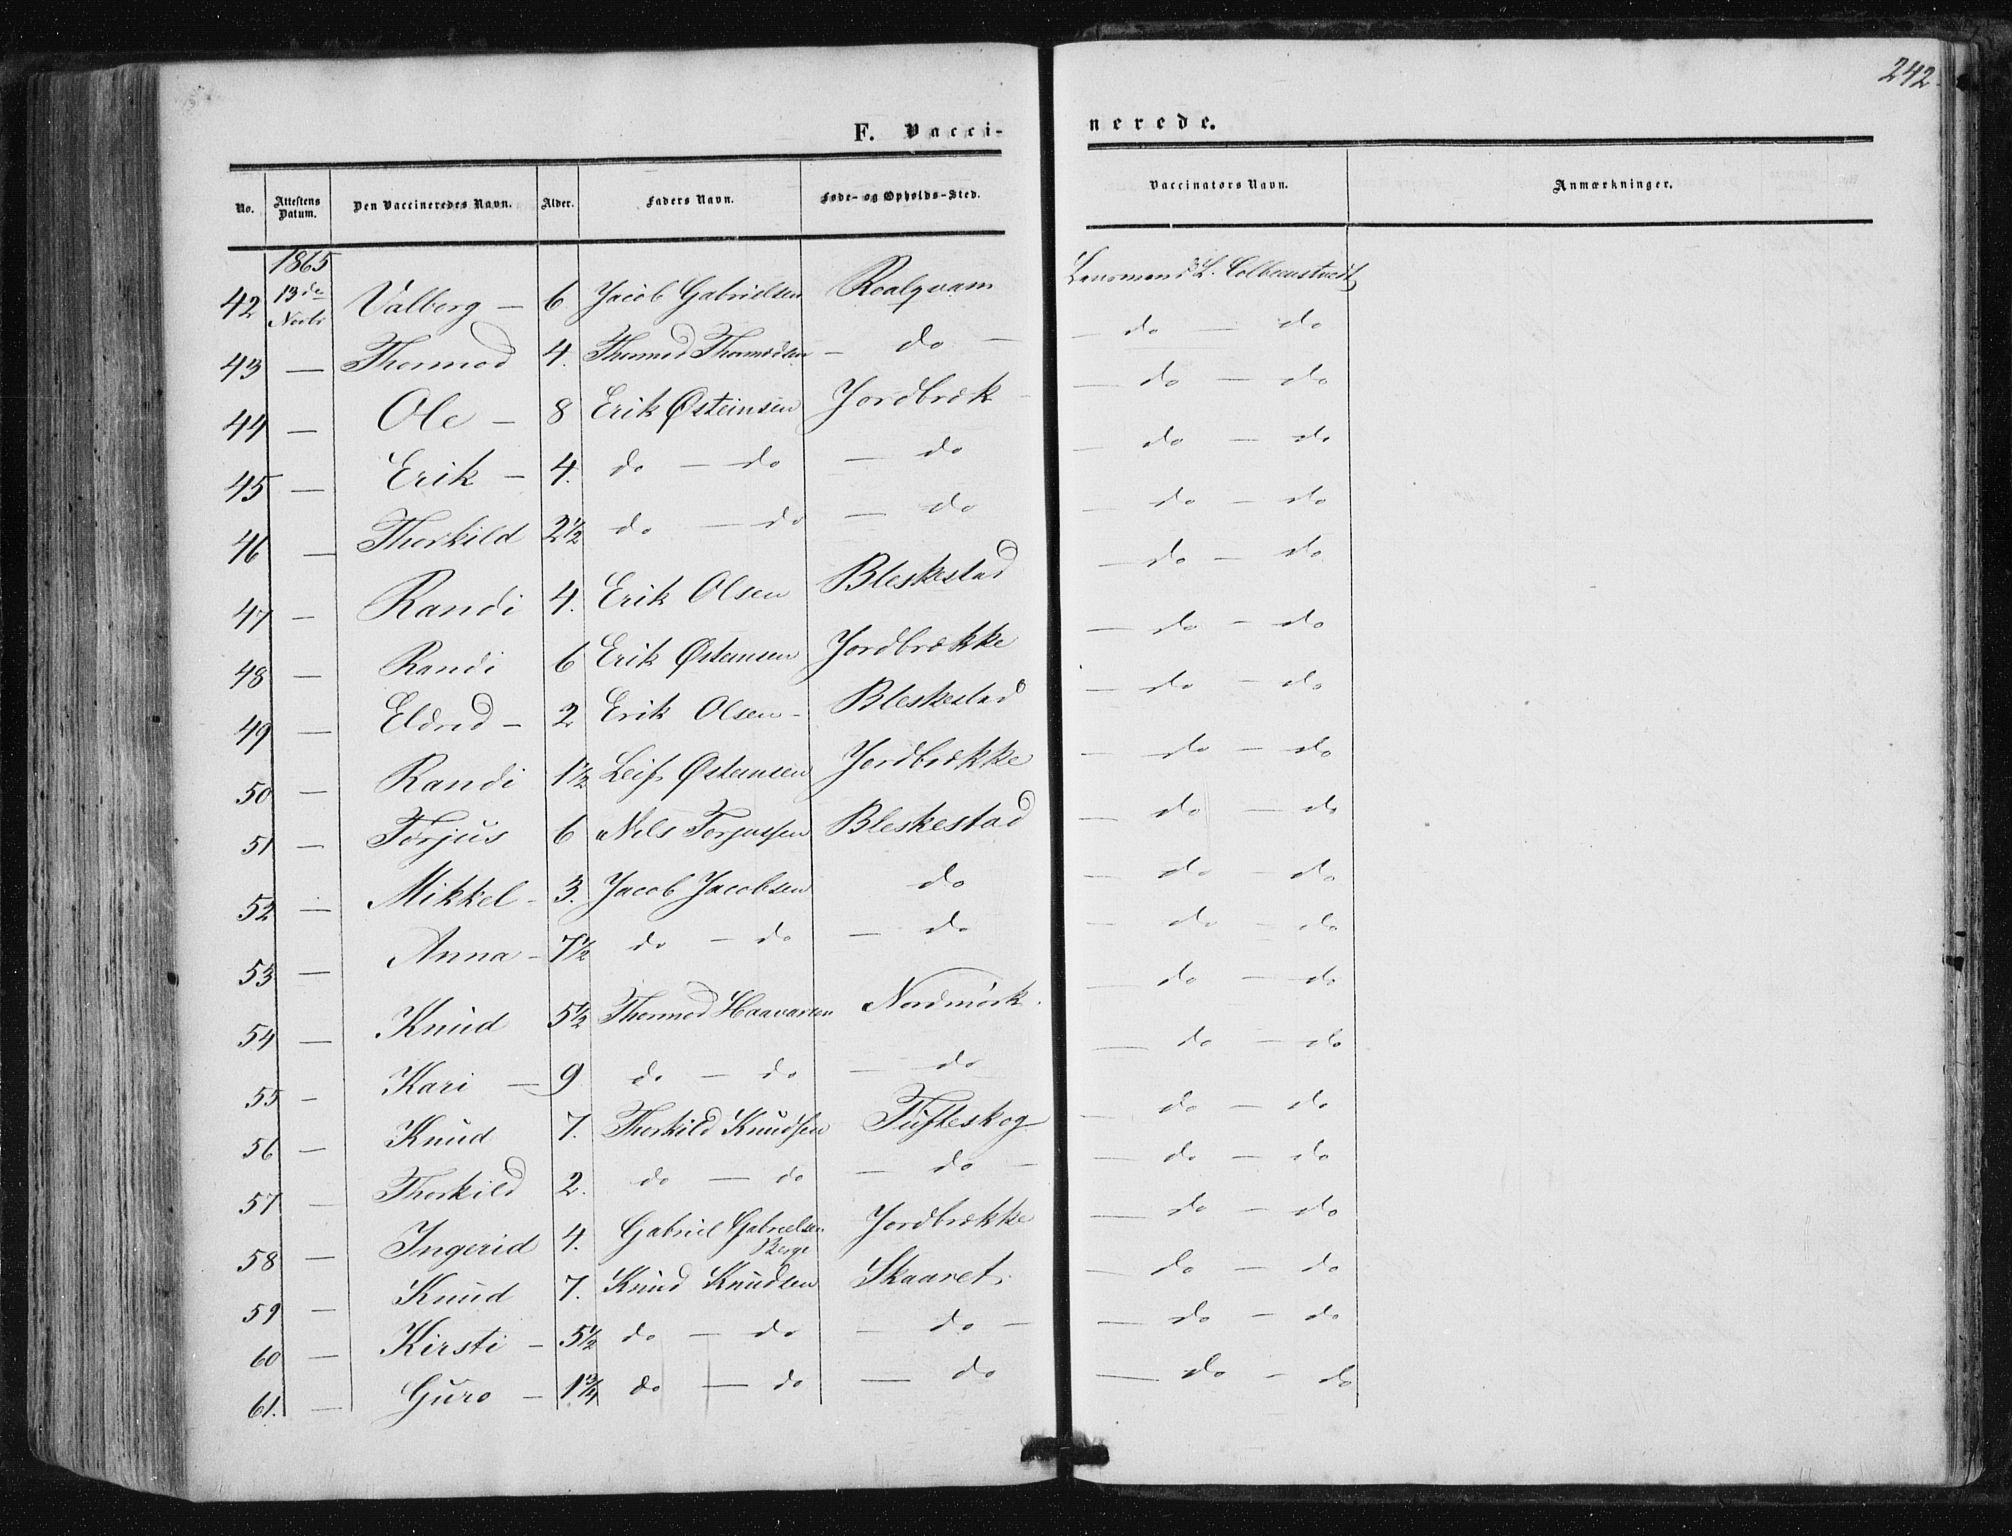 242
F. Vacci- nerede.
No. Attestens Datum. Den Vaccineredes Navn. Alder. Faders Navn. Føde- og Opholds-Sted. Vaccinators Navn. Anmærkninger.
1865
42 13de Novbr Valborg – 6 Jacob Gabrielsen Roalqvam Lensmand L.
43 — Thormod 4. Thormod Thormodsen — do — — do — do
44 — Ole – 8 Erik Østeinsen Jordbrek — do — do
45 — Erik – 4. do — do — do — do — do
46 — Thorkild 2½ do — do — do — do — do
47 — Randi 4. Erik Olsen Bleskestad — do — do
48 — Randi 6 Erik Østensen Jordbrække — do — do
49 — Eldrid – 2 Erik Olsen – Bleskestad — do — do
50 — Randi 1½ Leif Østensen Jordbrække — do — do
51 — Torjus 6 Nils Torjussen Bleskestad — do — do
52 — Mikkel – 3. Jacob Jacobsen do — do — do
53 — Anna – 7½ do — do — do — do — do
54 — Knud 5½ Thormod Haavarsen Nordmork. — do — do
55 — Kari — 9 do — do — do — do — do
56 — Knud 7. Thorkild Knudsen Tufteskog — do — do
57 — Thorkild 2. do — do — do — — do — do
58 — Ingerid 4. Gabriel Gabrielsen Berge Jordbrække — do — do
59 — Knud 7. Knud Knudsen Skaaret. — do — do
60 — Kirsti – 5½ do — do — do — — do — do
61. — Guro – 1¾ do — do — do — do — do